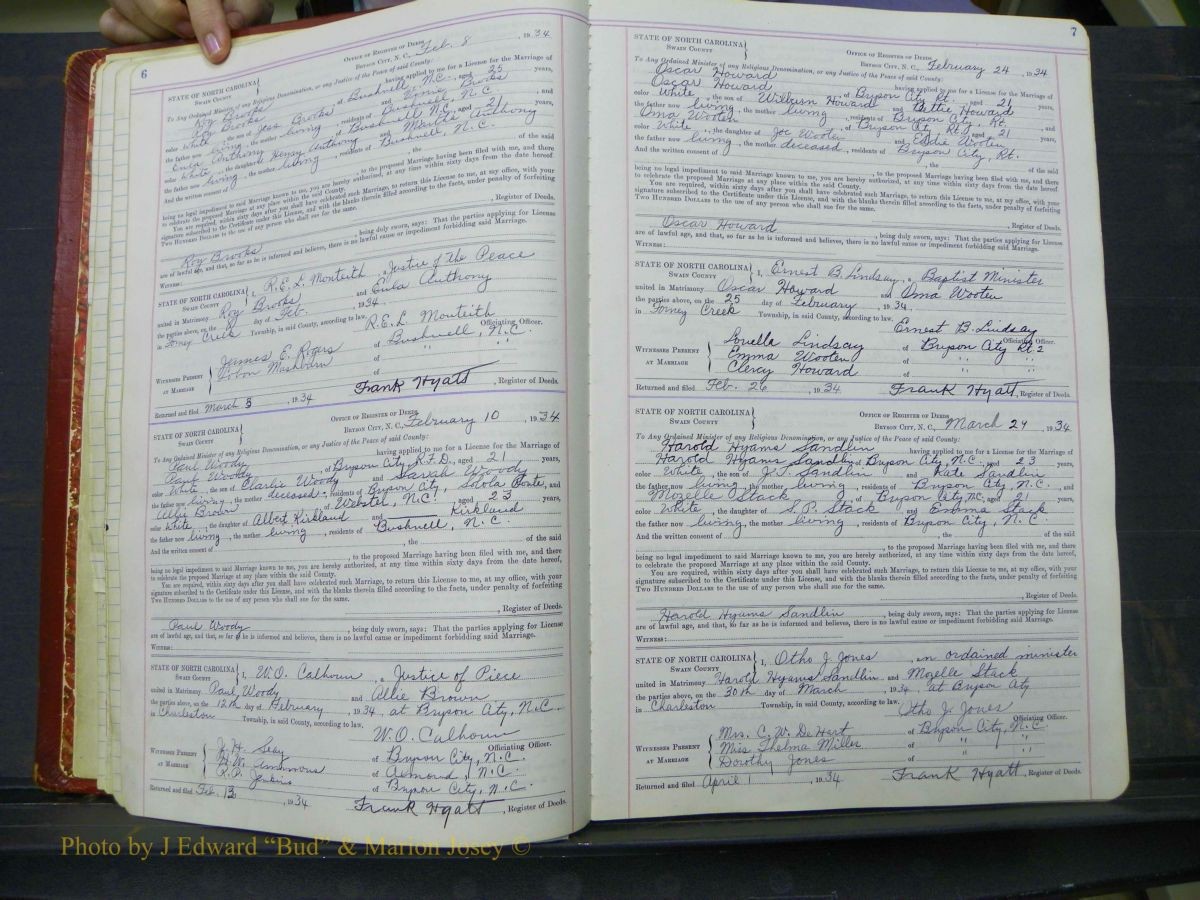 6
OFFICE OF REGISTER OF DEEDS
STATE OF NORTH CAROLINA
SWAIN COUNTY
BRYSON CITY, N. C., Feb. 8, 1934
To Any Ordained Minister of any Religious Denomination, or any Justice of the Peace of said County:
Roy Brooks having applied to me for a License for the Marriage of
Roy Brooks, of Bushnell, N.C., aged 25 years,
color White, the son of Jess Brooks and Brooks
the father now living, the mother living, residents of Bushnell, N.C., and
Eula Anthony of Bushnell N.C. aged 21 years,
color White, the daughter of Henry Anthony and Anthony
the father now living, the mother living, residents of Bushnell, N.C.
And the written consent of , the of the said
, to the proposed Marriage having been filed with me, and there
being no legal impediment to said Marriage known to me, you are hereby authorized, at any time within sixty days from the date hereof,
to celebrate the proposed Marriage at any place within the said County.
You are required, within sixty days after you shall have celebrated such Marriage, to return this License to me, at my office, with your
signature subscribed to the Certificate under this License, and with the blanks therein filled according to the facts, under penalty of forfeiting
TWO HUNDRED DOLLARS to the use of any person who shall sue for the same.
, Register of Deeds.
Roy Brooks, being duly sworn, says: That the parties applying for License
are of lawful age, and that, so far as he is informed and believes, there is no lawful cause or impediment forbidding said Marriage.
WITNESS:
STATE OF NORTH CAROLINA
SWAIN COUNTY
I, R.E.L. Monteith, Justice of the Peace
united in Matrimony Roy Brooks and Eula Anthony
the parties above, on the 8 day of Feb. 1934.
in Forney Creek Township, in said County, according to law.
R.E.L. Monteith
Officiating Officer.
WITNESSES PRESENT AT MARRIAGE
James E. Rogers of Bushnell, N.C.
Lobon Mashburn of " "
of
Returned and filed March 8, 1934 Frank Hyatt, Register of Deeds.
OFFICE OF REGISTER OF DEEDS
STATE OF NORTH CAROLINA
SWAIN COUNTY
BRYSON CITY, N. C., February 10, 1934
To Any Ordained Minister of any Religious Denomination, or any Justice of the Peace of said County:
Paul Woody having applied to me for a License for the Marriage of
Paul Woody, of Bryson City, R.F.D., aged 21 years,
color White, the son of Charlie Woody and Sarah Woody
the father now living, the mother deceased, residents of Bryson City, Route, and
Allie Brown of Webster, N.C. aged 23 years,
color White, the daughter of Albert Kirkland and Kirkland
the father now living, the mother living, residents of Bushnell, N.C.
And the written consent of , the of the said
, to the proposed Marriage having been filed with me, and there
being no legal impediment to said Marriage known to me, you are hereby authorized, at any time within sixty days from the date hereof,
to celebrate the proposed Marriage at any place within the said County.
You are required, within sixty days after you shall have celebrated such Marriage, to return this License to me, at my office, with your
signature subscribed to the Certificate under this License, and with the blanks therein filled according to the facts, under penalty of forfeiting
TWO HUNDRED DOLLARS to the use of any person who shall sue for the same.
, Register of Deeds.
Paul Woody, being duly sworn, says: That the parties applying for License
are of lawful age, and that, so far as he is informed and believes, there is no lawful cause or impediment forbidding said Marriage.
WITNESS:
STATE OF NORTH CAROLINA
SWAIN COUNTY
I, W.O. Calhoun, a Justice of Piece
united in Matrimony Paul Woody and Allie Brown
the parties above, on the 12th day of February 1934, at Bryson City, N.C.
in Charleston Township, in said County, according to law.
W.O. Calhoun
Officiating Officer.
WITNESSES PRESENT AT MARRIAGE
J.H. Seay of Bryson City, N.C.
H.W. Ammons of Almond, N.C.
R.P. Jenkins of Bryson City, N.C.
Returned and filed Feb. 13, 1934 Frank Hyatt, Register of Deeds.
7
OFFICE OF REGISTER OF DEEDS
STATE OF NORTH CAROLINA
SWAIN COUNTY
BRYSON CITY, N. C., February 24, 1934
To Any Ordained Minister of any Religious Denomination, or any Justice of the Peace of said County:
Oscar Howard having applied to me for a License for the Marriage of
Oscar Howard, of Bryson City Rt., aged 21 years,
color White, the son of William Howard and Bettie Howard
the father now living, the mother living, residents of Bryson City, Rt., and
Oma Wooten of Bryson City Rt. aged 21 years,
color White, the daughter of Joe Wooten and Eddie Wooten
the father now living, the mother deceased, residents of Bryson City, Rt.
And the written consent of , the of the said
, to the proposed Marriage having been filed with me, and there
being no legal impediment to said Marriage known to me, you are hereby authorized, at any time within sixty days from the date hereof,
to celebrate the proposed Marriage at any place within the said County.
You are required, within sixty days after you shall have celebrated such Marriage, to return this License to me, at my office, with your
signature subscribed to the Certificate under this License, and with the blanks therein filled according to the facts, under penalty of forfeiting
TWO HUNDRED DOLLARS to the use of any person who shall sue for the same.
, Register of Deeds.
Oscar Howard, being duly sworn, says: That the parties applying for License
are of lawful age, and that, so far as he is informed and believes, there is no lawful cause or impediment forbidding said Marriage.
WITNESS:
STATE OF NORTH CAROLINA
SWAIN COUNTY
I, Ernest B. Lindsay, a Baptist Minister
united in Matrimony Oscar Howard and Oma Wooten
the parties above, on the 25 day of February 1934.
in Forney Creek Township, in said County, according to law.
Ernest B. Lindsay
Officiating Officer.
WITNESSES PRESENT AT MARRIAGE
Louella Lindsay of Bryson City Rt 2
Emma Wooten of " "
Clercy Howard of " "
Returned and filed Feb. 26, 1934 Frank Hyatt, Register of Deeds.
OFFICE OF REGISTER OF DEEDS
STATE OF NORTH CAROLINA
SWAIN COUNTY
BRYSON CITY, N. C., March 29, 1934
To Any Ordained Minister of any Religious Denomination, or any Justice of the Peace of said County:
Harold Hyams Sandlin having applied to me for a License for the Marriage of
Harold Hyams Sandlin of Bryson City, N.C., aged 23 years,
color White, the son of J.T. Sandlin and Kate Sandlin
the father now living, the mother living, residents of Bryson City, N.C., and
Mozelle Stack of Bryson City N.C. aged 21 years,
color White, the daughter of S.P. Stack and Emma Stack
the father now living, the mother living, residents of Bryson City, N.C.
And the written consent of , the of the said
, to the proposed Marriage having been filed with me, and there
being no legal impediment to said Marriage known to me, you are hereby authorized, at any time within sixty days from the date hereof,
to celebrate the proposed Marriage at any place within the said County.
You are required, within sixty days after you shall have celebrated such Marriage, to return this License to me, at my office, with your
signature subscribed to the Certificate under this License, and with the blanks therein filled according to the facts, under penalty of forfeiting
TWO HUNDRED DOLLARS to the use of any person who shall sue for the same.
, Register of Deeds.
Harold Hyams Sandlin, being duly sworn, says: That the parties applying for License
are of lawful age, and that, so far as he is informed and believes, there is no lawful cause or impediment forbidding said Marriage.
WITNESS:
STATE OF NORTH CAROLINA
SWAIN COUNTY
I, Otho J Jones, an ordained minister
united in Matrimony Harold Hyams Sandlin and Mozelle Stack
the parties above, on the 30th day of March 1934, at Bryson City
in Charleston Township, in said County, according to law.
Otho J. Jones
Officiating Officer.
WITNESSES PRESENT AT MARRIAGE
Mrs. C. W. De Hart of Bryson City, N.C.
Miss Thelma Miller of " "
Dorothy Jones of " "
Returned and filed April 1, 1934 Frank Hyatt, Register of Deeds.
Photo by J Edward "Bud" & Marion Josey ©